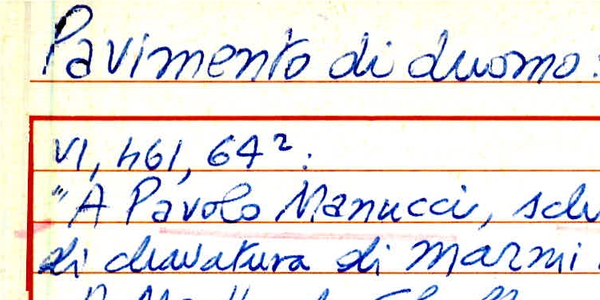 Pavimento di duomo:
VI, 461, 64²:
"A Pavolo Manucci,
di chavatura di marmi